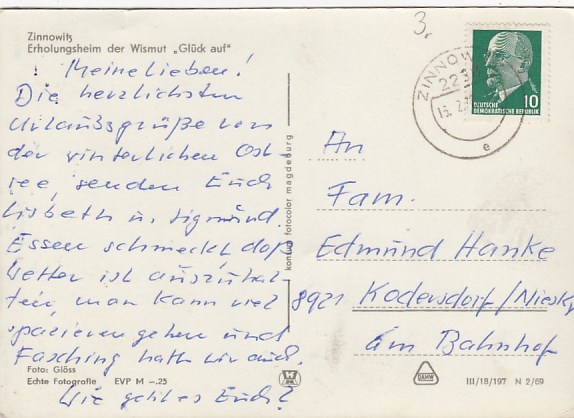 Zinnowitz
Erholungsheim der Wismut „Glück auf"
! Meine Lieben!
Die herzlichsten
Urlaubsgrüße von
der winterlichen Ost-
see, senden Euch
Lisbeth u. Sigmund.
Essen schmeckt, das
Wetter ist auszuhal-
ten, man kann viel
spazieren gehen und
Fasching hatten wir auch.
Wie geht es Euch?
Foto: Gläss
Echte Fotografie EVP M -.25
konsum fotocolor magdeburg
3,
ZINNOW
223
15. 2.
e
10
DEUTSCHE
DEMOKRATISCHE REPUBLIK
An
Fam.
Edmund Hanke
8921 Kodersdorf/Niesky
Am Bahnhof
DAHW
III/18/197 N 2/69